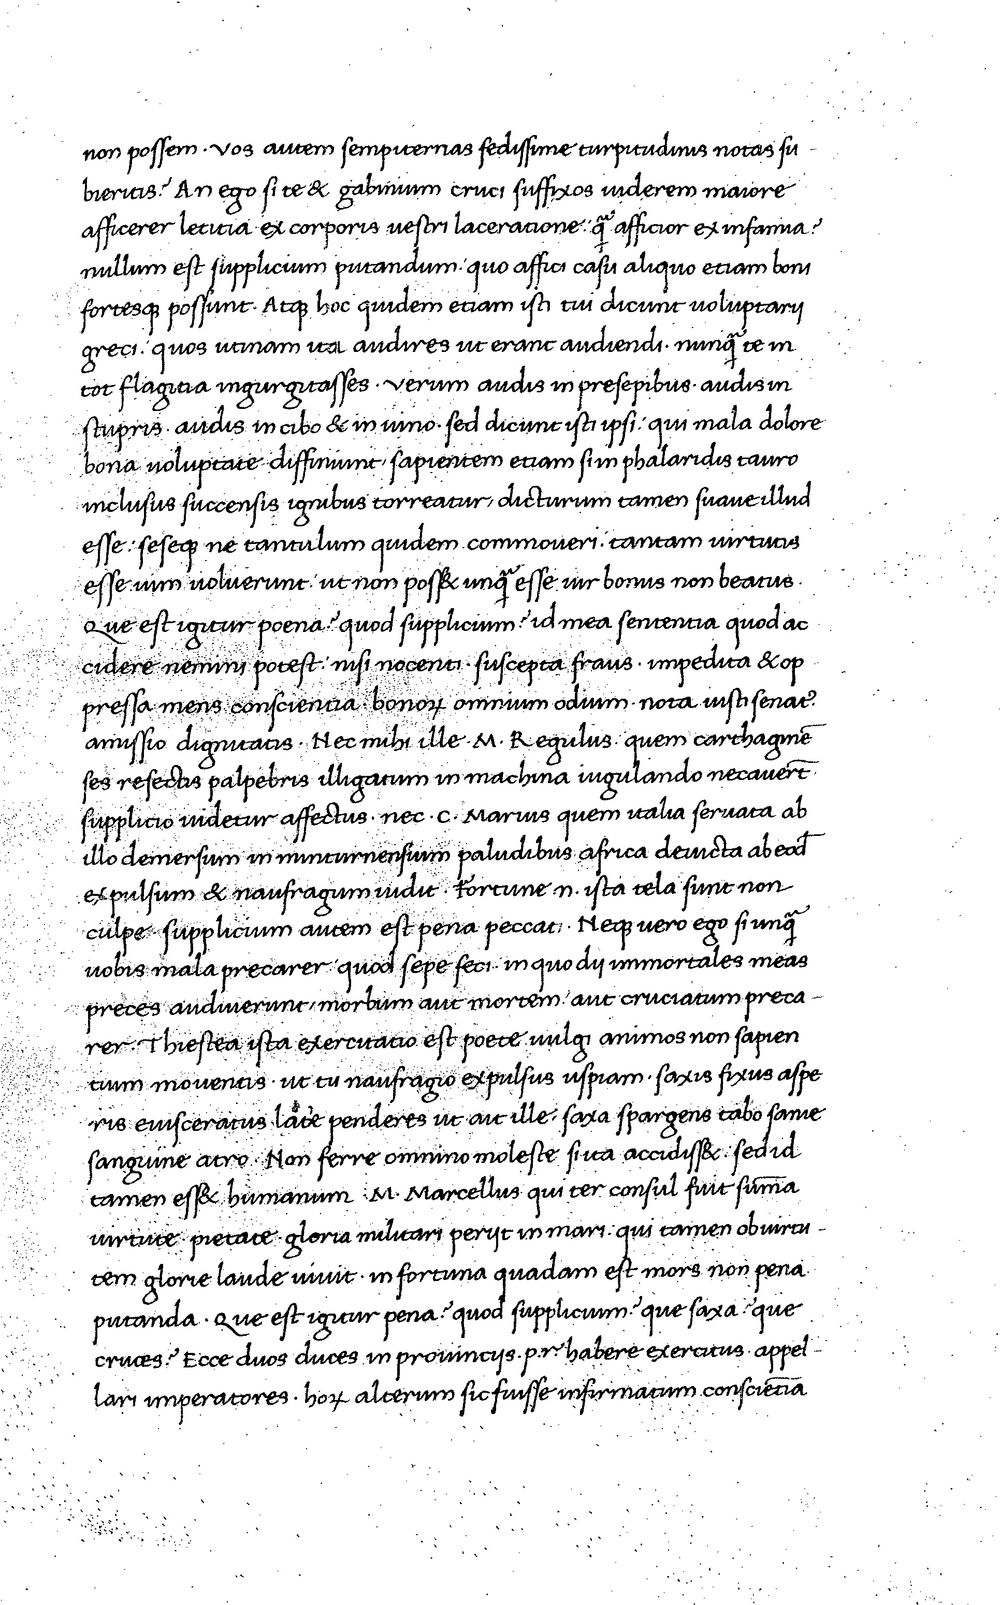 non possem · Vos autem sempiternas fedissime turpitudinis notas su-
bieritis? An ego si te & gabinium cruci suffixos uiderem maiore
afficerer letitia ex corporis uestri laceratione: q̃ afficior ex infamia?
nullum est supplicium putandum: quo affici casu aliquo etiam boni
fortesq; possunt · Atq; hoc quidem etiam isti tui dicunt uoluptarij
greci: quos utinam ita audires ut erant audiendi · nunq̃ te in
tot flagitia ingurgitasses · Verum audis in presepibus · audis in
stupris · audis in cibo & in uino · sed dicunt isti ipsi: qui mala dolore
bona uoluptate diffiniunt, sapientem etiam si in phalaridis tauro
inclusus succensis ignibus torreatur, dicturum tamen suaue illud
esse: seseq; ne tantulum quidem commoueri: tantam uirtutis
esse uim uoluerunt: ut non poss& unq̃ esse uir bonus non beatus ·
Que est igitur poena? quod supplicium? id mea sententia quod ac
cidere nemini potest: nisi nocenti · suscepta fraus · impedita & op
pressa mens conscientia · bonoꝝ omnium odium · nota iusti senat9.
amissio dignitatis · Nec mihi ille M. Regulus quem carthaginē
ses resectis palpebris illigatum in machina iugulando necauert̄
supplicio uidetur affectus · nec · C. Marius quem italia seruata ab
illo demersum in minturnensium paludibus africa deuicta ab eod̄
expulsum & naufragum uidit · Fortune n. ista tela sunt non
culpe: supplicium autem est pena peccati · Neq; uero ego si unq̃
uobis mala precarer quod sepe feci · in quo dij immortales meas
preces audiuerunt, morbum aut mortem aut cruciatum preca-
rer · Thiestea ista exercitatio est poete uulgi animos non sapien
tium mouentis · ut tu naufragio expulsus uspiam · saxis fixus aspe
ris euisceratus latere penderes ut ait ille: saxa spargens tabo sanie
sanguine atro · Non ferre omnino moleste si ita accidiss&: sed id
tamen ess& humanum · M. Marcellus qui ter consul fuit sum̄a
uirtute pietate gloria militari perijt in mari: qui tamen ob uirtu-
tem glorie laude uiuit · in fortuna quadam est mors non pena
putanda · Que est igitur pena? quod supplicium? que saxa? que
cruces? Ecce duos duces in prouincijs · p.r. habere exercitus · appel-
lari imperatores · hoꝝ alterum sic fuisse infirmatum consciētia